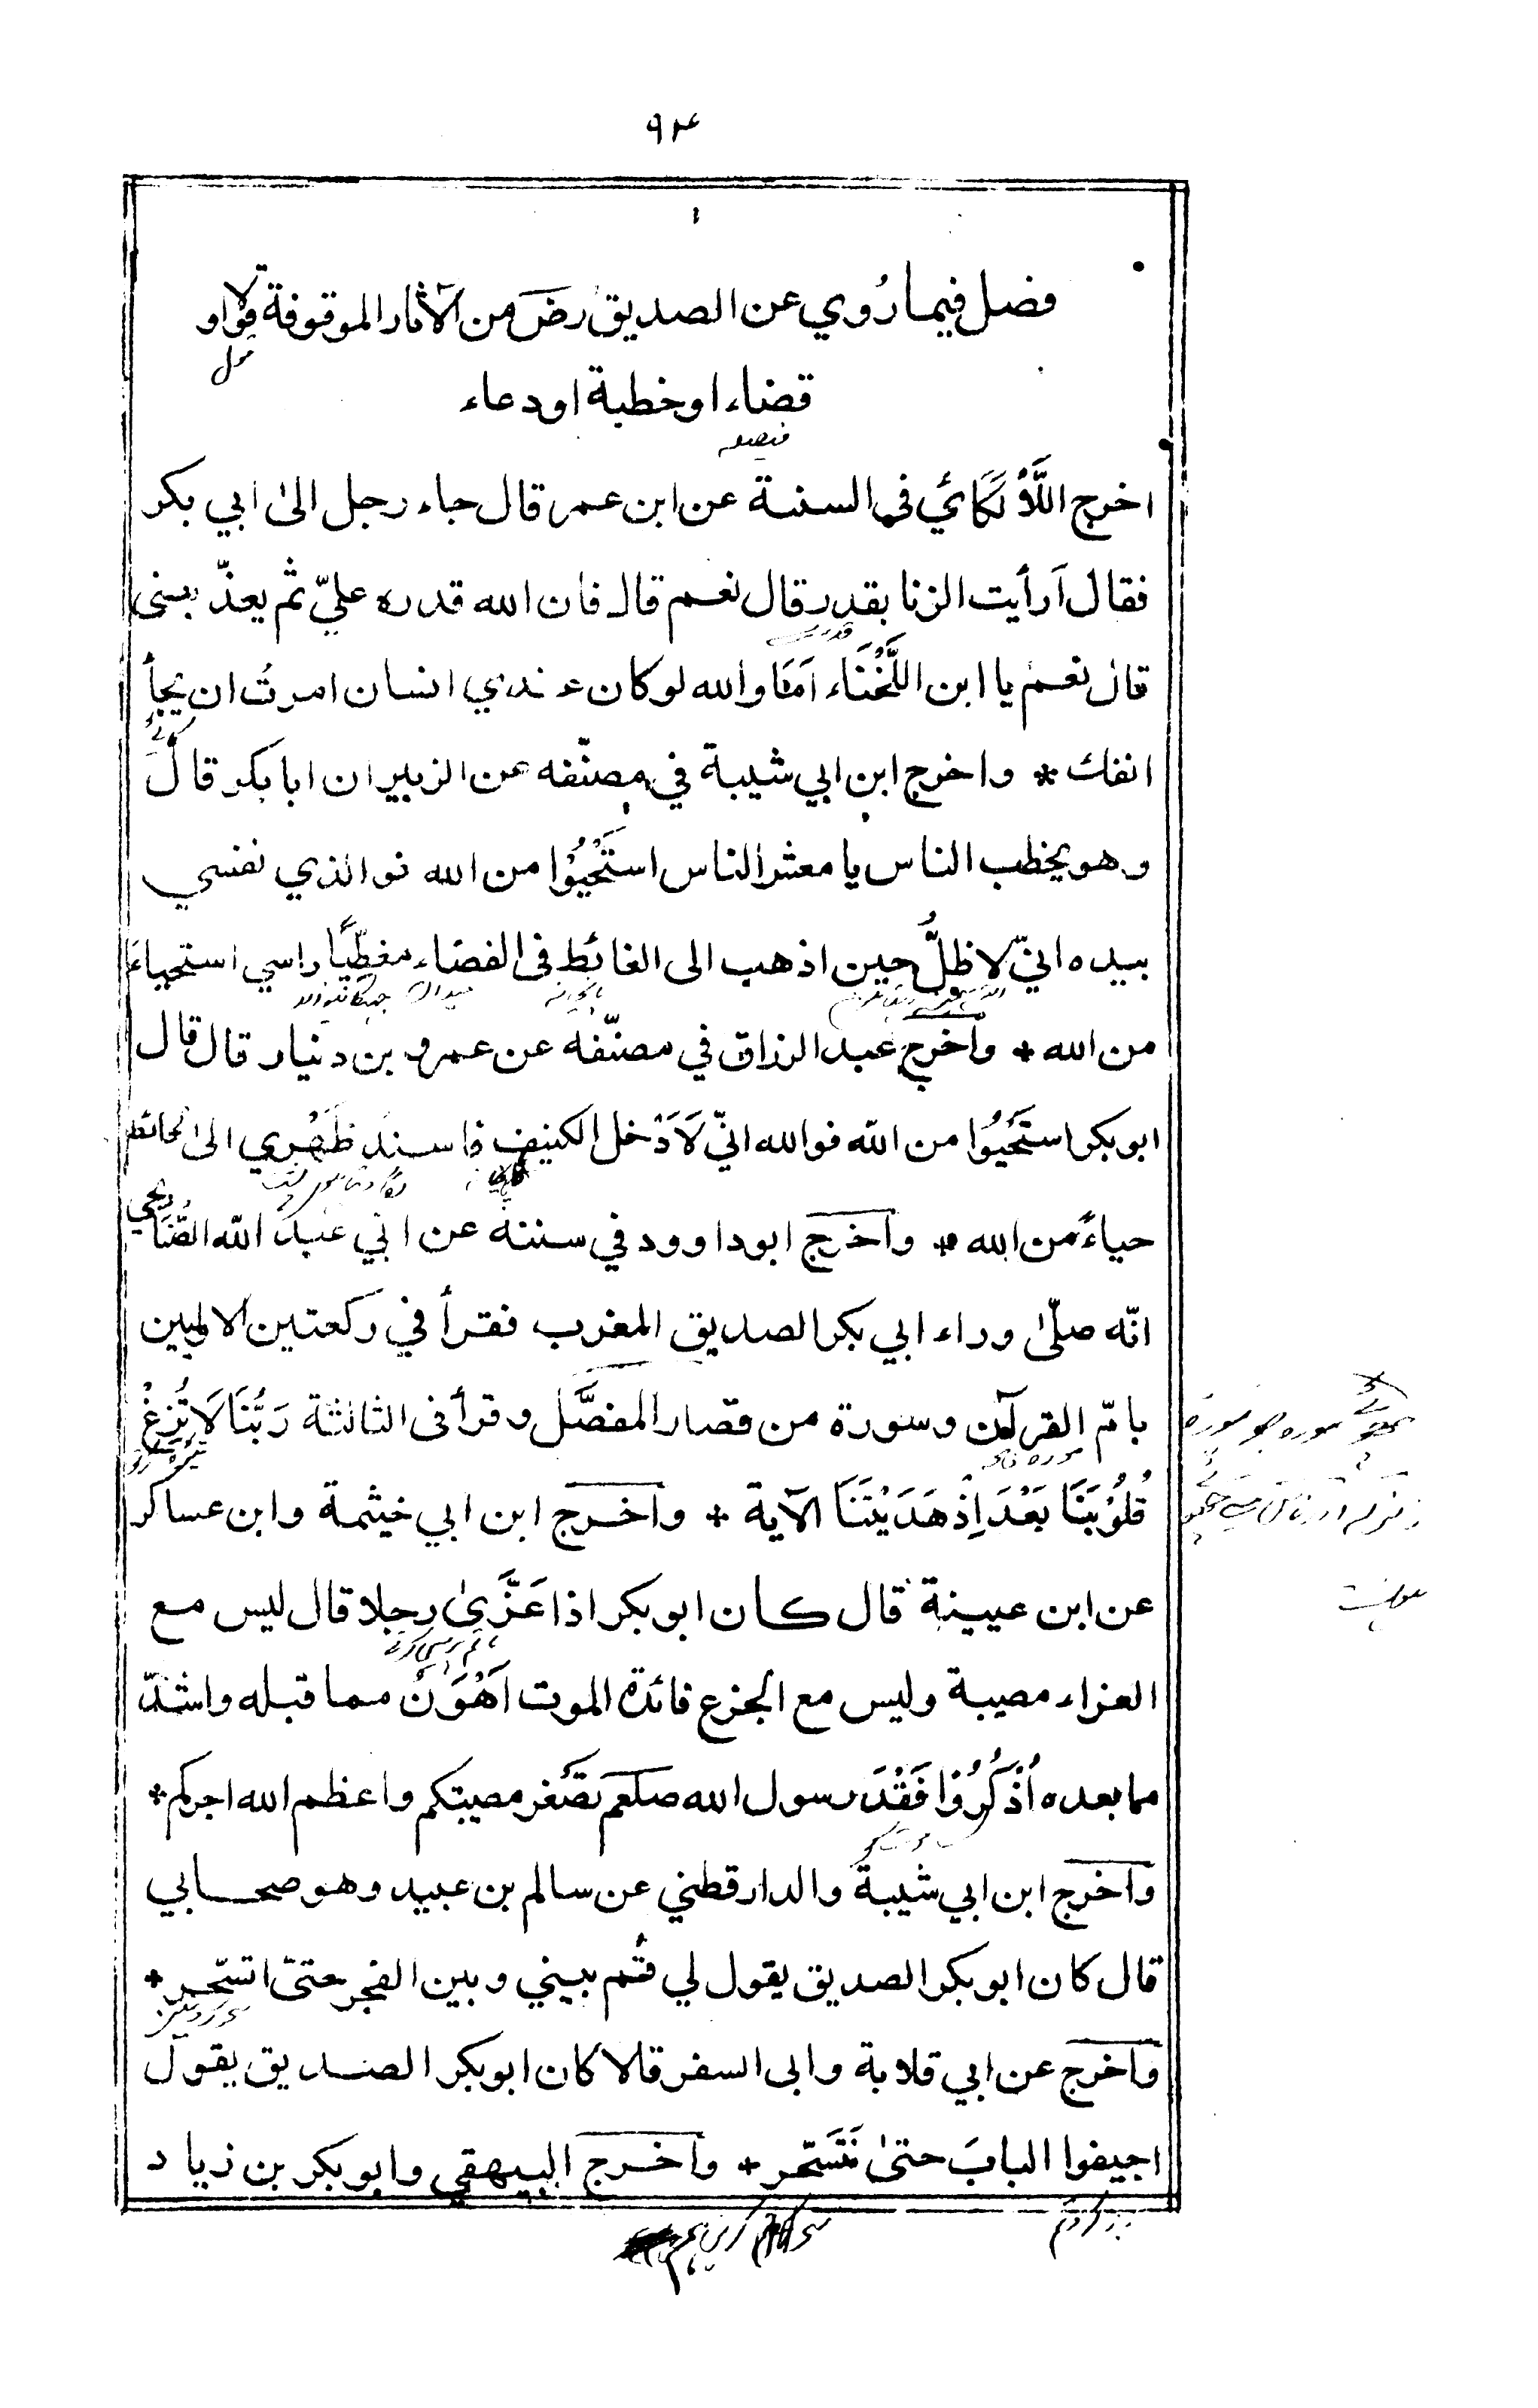 ٩٤
فصل فيما رُوي عن الصديق رض من الآثار الموقوفة قولا او
قضاء او خطبة او دعاء
اخرج اللَّالَكَائي فى السنة عن ابن عمر قال جاء رجل الى ابي بكر
فقال اَرأيت الزنا بقدر قال نعم قال فان الله قدره عليّ ثم يعذّبنى
قال نعم يا ابن اللَّخْنَاء اَمَا والله لوكان عندي انسان امرتُ ان يجأ
انفك * واخرج ابن ابي شيبة في مصنّفه عن الزبير ان ابا بكر قال
وهو يخطب الناس يا معشر الناس استَحْيُوْا من الله فو الذي نفسي
بيده انيّ لاظلُّ حين اذهب الى الغائط فى الفضاء مغطّيًا راسي استحياءً
من الله * واخرج عبد الرزاق في مصنّفه عن عمرو بن دنيار قال قال
ابوبكر استَحْيُوْا من الله فوالله انيّ لَاَدْخل الكنيف فاسند ظَهْري الى الحائط
حياءً من الله * واخرج ابوداوود في سننه عن ابي عبد الله الصُّنَابحي
انّه صلّى وراء ابي بكر الصديق المغرب فقرأ في ركعتين الاوليين
بامّ القرآن وسورة من قصار المفصَّل وقرأ فى الثالثة رَبَّنَا لَا تُزِغْ
قُلُوْبَنَا بَعْدَ اِذْ هَدَيْتَنَا الآية * واخرج ابن ابي خيثمة وابن عساكر
عن ابن عيينة قال كان ابوبكر اذا عَزَّىٰ رجلا قال ليس مع
العزاء مصيبة وليس مع الجزع فائدة الموت اَهْوَنُ مما قبله واشدّ
مما بعده اُذْكُرُوْا فَقْدَ رسول الله صلعم تصَغر مصيبتكم واعظم الله اجركم *
واخرج ابن ابي شيبة والدارقطني عن سالم بن عبيد وهو صحابي
قال كان ابوبكر الصديق يقول لي قُم بيني وبين الفجر حتىّ اتسّحر *
واخرج عن ابي قلابة وابى السفر قالا كان ابوبكر الصديق يقول
اجيفوا البابَ حتىٰ نَتَسَّحر * واخرج البيهقي وابوبكر بن زياد